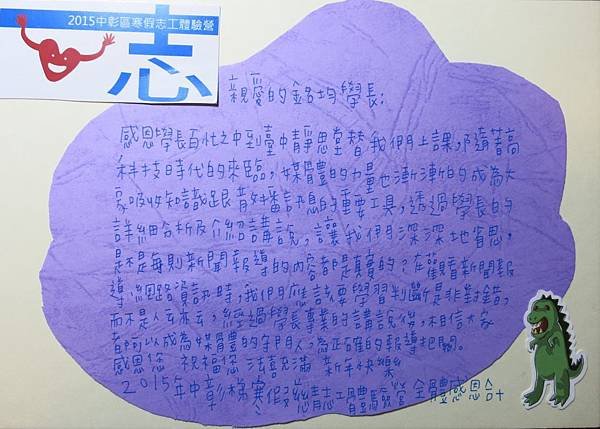 2015中彰區寒假志工體驗營
志
親愛的銘均學長:
感恩學長百忙之中到臺中靜思堂替我們上課,隨著高
科技時代的來臨,媒體的力量也漸漸的成為大
家吸收知識跟散播訊息的重要工具,透過學長的
詳細分析及介紹講說,讓我們深深地省思,
是不是每則新聞報導的內容都是真實的?在觀看新聞報
導、網路資訊時,我們應該要學習判斷是非對錯,
而不是人云亦云,經過學長專業的講說後,相信大家
都可以成為媒體的守門人,為正確的報導把關。
感恩您 祝福您 法喜充滿 新年快樂
2015年中彰梯寒假慈志工體驗營 全體感恩計